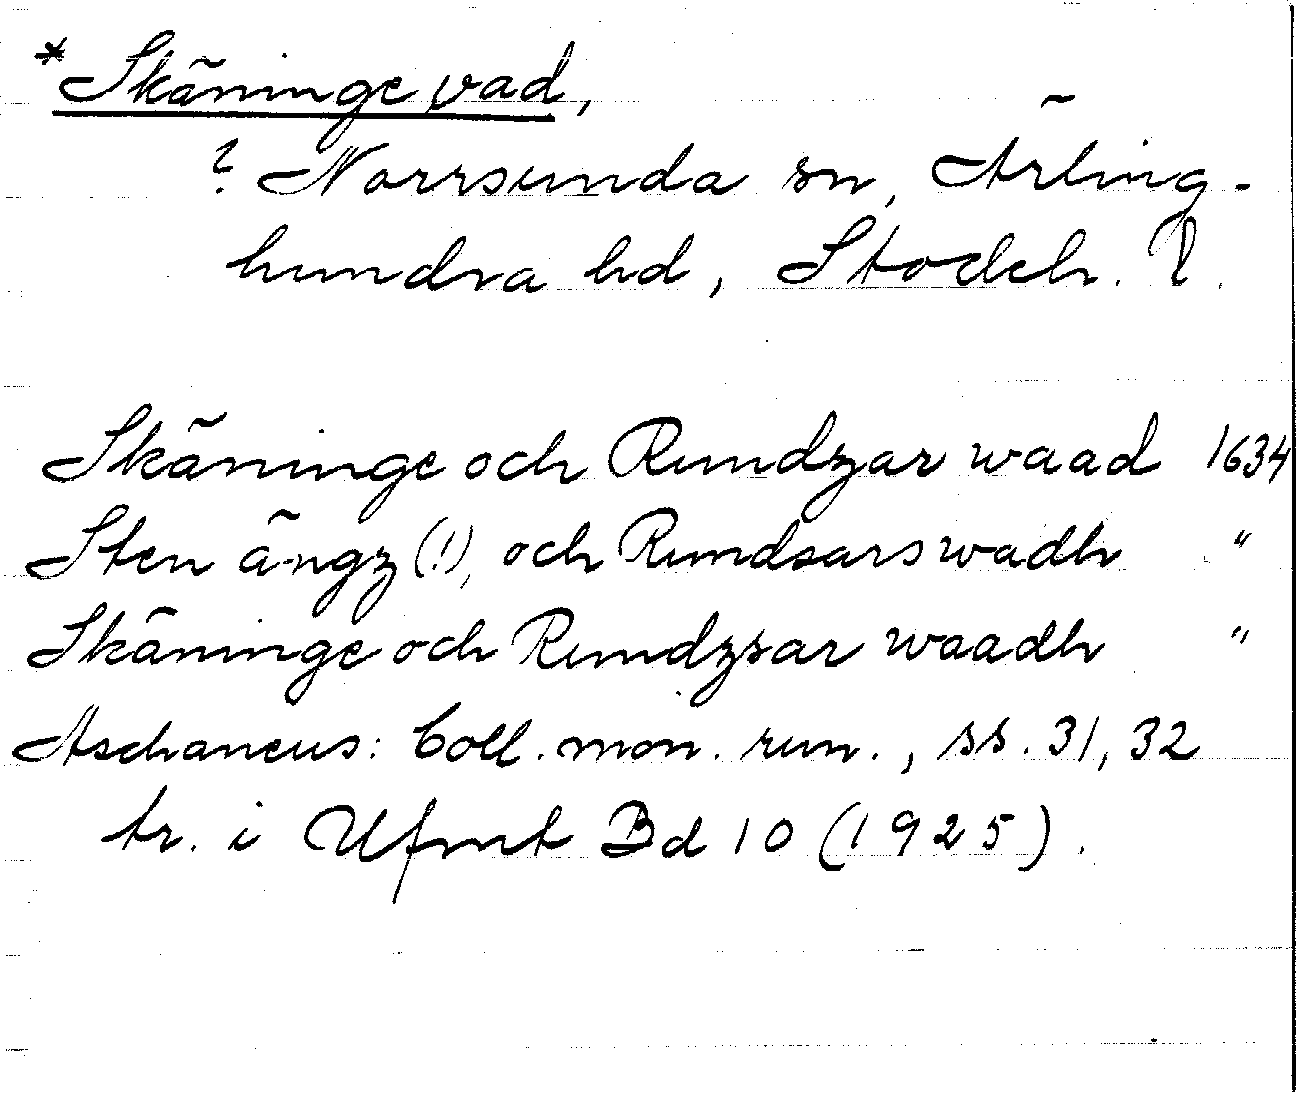 *Skäninge vad,
? Norrsunda sn, Ärling-
hundra hd, Stockh. ?.
Skäninge och Rundzar waad 1634
Sten ängz (!), och Rundsars wadh "
Skäninge och Rundzsar waadh "
Aschaneus: Coll. mon. run., ss. 31, 32
tr. i Ufmt Bd 10 (1925).